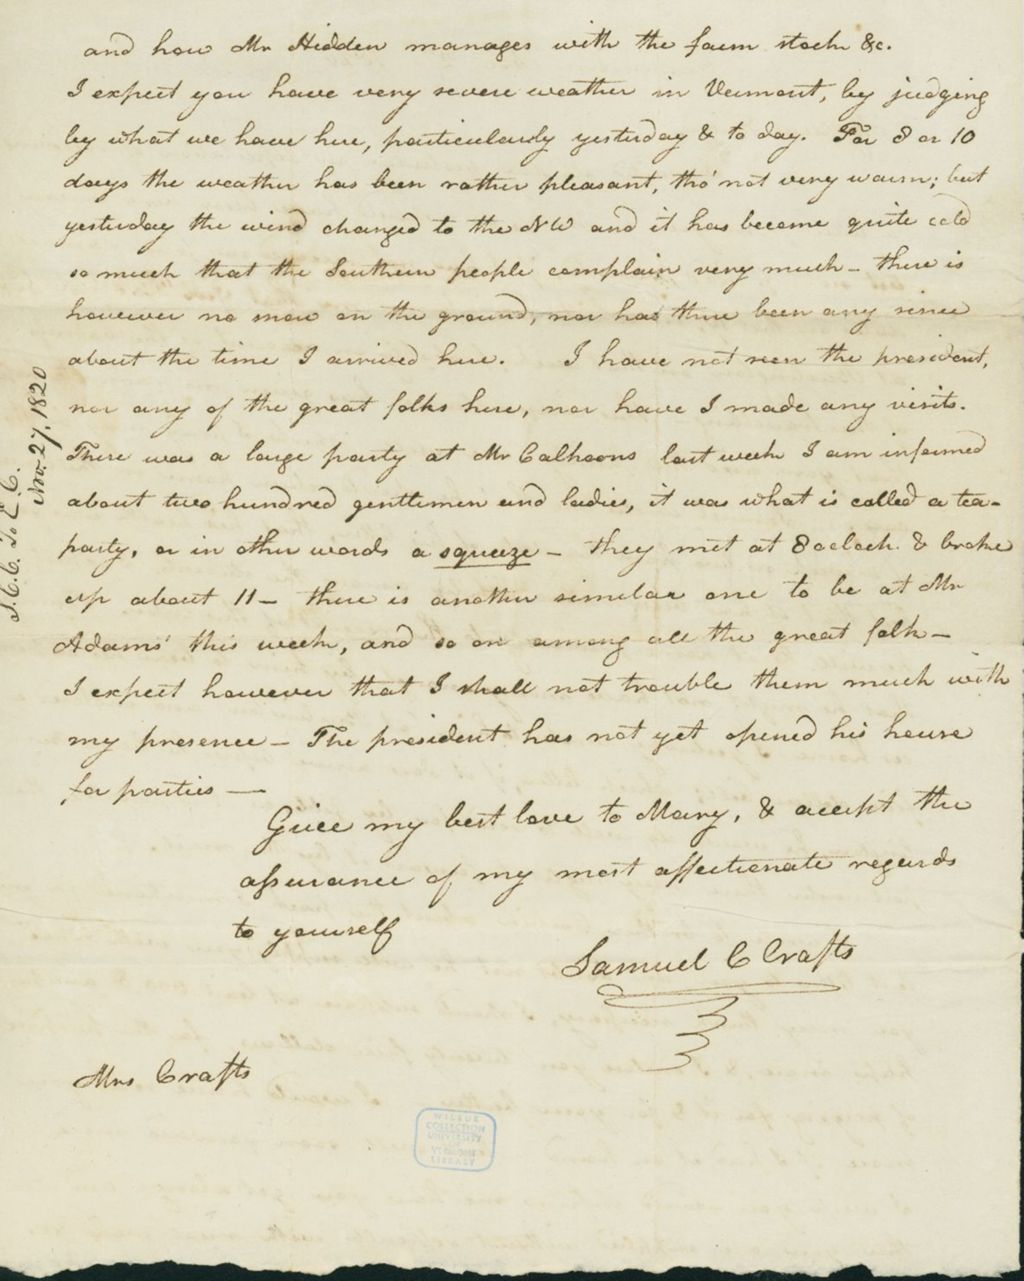 and how Mr Hidden manages with the farm stock &c.
I expect you have very severe weather in Vermont, by judging
by what we have here, particularly yesterday & to day. For 8 or 10
days the weather has been rather pleasant, tho' not very warm; but
yesterday the wind changed to the NW and it has become quite cold
so much that the Southern people complain very much – there is
however no snow on the ground, nor has there been any since
about the time I arrived here. I have not seen the president,
nor any of the great folks here, nor have I made any visits.
There was a large party at Mr Calhoons last week I am informed
about two hundred gentlemen and ladies, it was what is called a tea-
party, or in other words a squeeze – they met at 8 oclock & broke
up about 11 – there is another similar one to be at Mr
Adams' this week, and so on among all the great folk –
I expect however that I shall not trouble them much with
my presence – The president has not yet opened his house
for parties —
Give my best love to Mary, & accept the
assurance of my most affectionate regards
to yourself
Samuel C Crafts
Mrs Crafts
S.C.C. To E.C.
Nov. 27, 1820
WILBUR
COLLECTION
UNIVERSITY
OF
VERMONT
LIBRARY